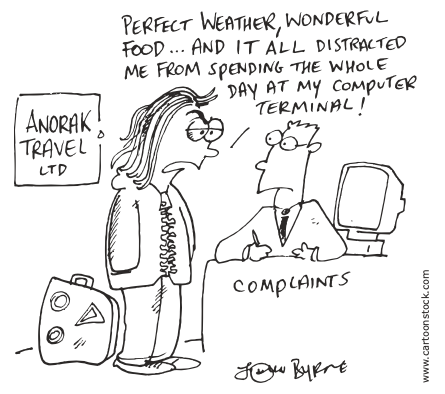 PERFECT WEATHER, WONDERFUL
FOOD... AND IT ALL DISTRACTED
ME FROM SPENDING THE WHOLE
DAY AT MY COMPUTER
TERMINAL!
ANORAK
TRAVEL
LTD
COMPLAINTS
John BYRNE
www.cartoonstock.com